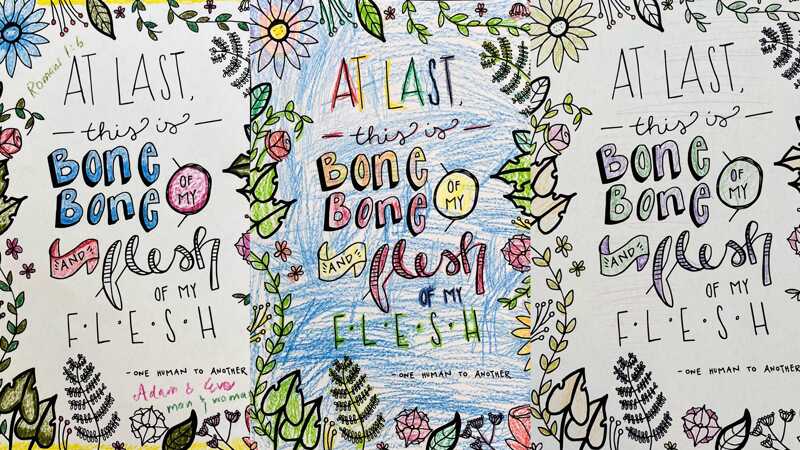 Romans 1:6
AT LAST,
this is
BONE
OF
MY
BONE
AND
flesh
OF MY
F·L·E·S·H
-ONE HUMAN TO ANOTHER
Adam & Eve
man & woman
AT LAST,
this is
BONE
OF
MY
BONE
AND
flesh
OF MY
F·L·E·S·H
-ONE HUMAN TO ANOTHER
AT LAST,
this is
BONE
OF
MY
BONE
AND
flesh
OF MY
F·L·E·S·H
-ONE HUMAN TO ANOTHER